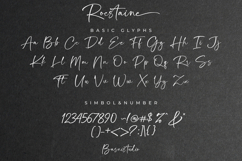 Roestaine
BASIC GLYPHS
Aa Bb Cc Dd Ee Ff Gg Hh Ii Jj
Kk Ll Mm Nn Oo Pp Qq Rr Ss
Tt Uu Vv Ww Xx Yy Zz
SIMBOL&NUMBER
1234567890 !@#$%^&
()-+<>?:;[]{}